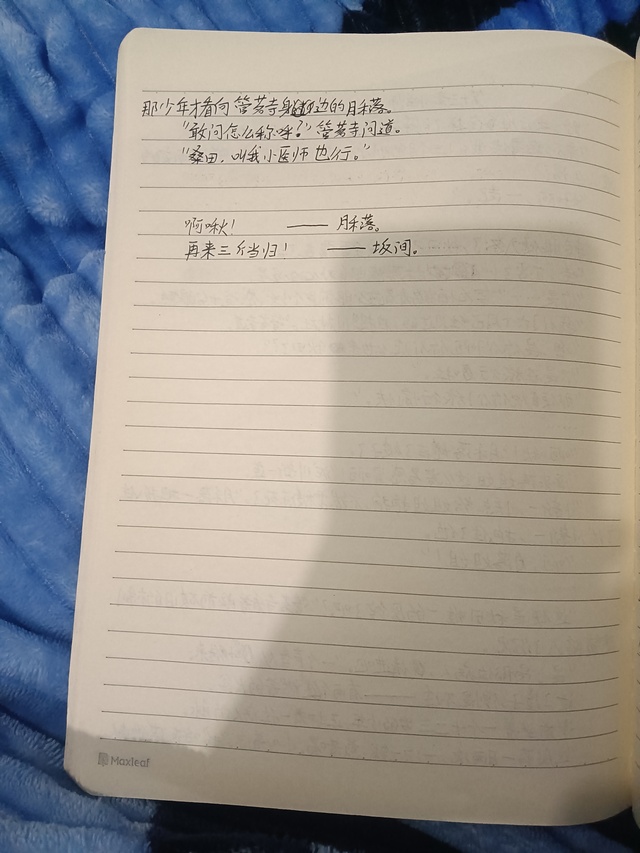 那少年才看向管若寺身边的月和落。
“敢问怎么称呼？”管若寺问道。
“桑田，叫我小医师也行。”
啊啾！ —— 月和落。
再来三斤当归！ —— 坂间。
Maxleaf